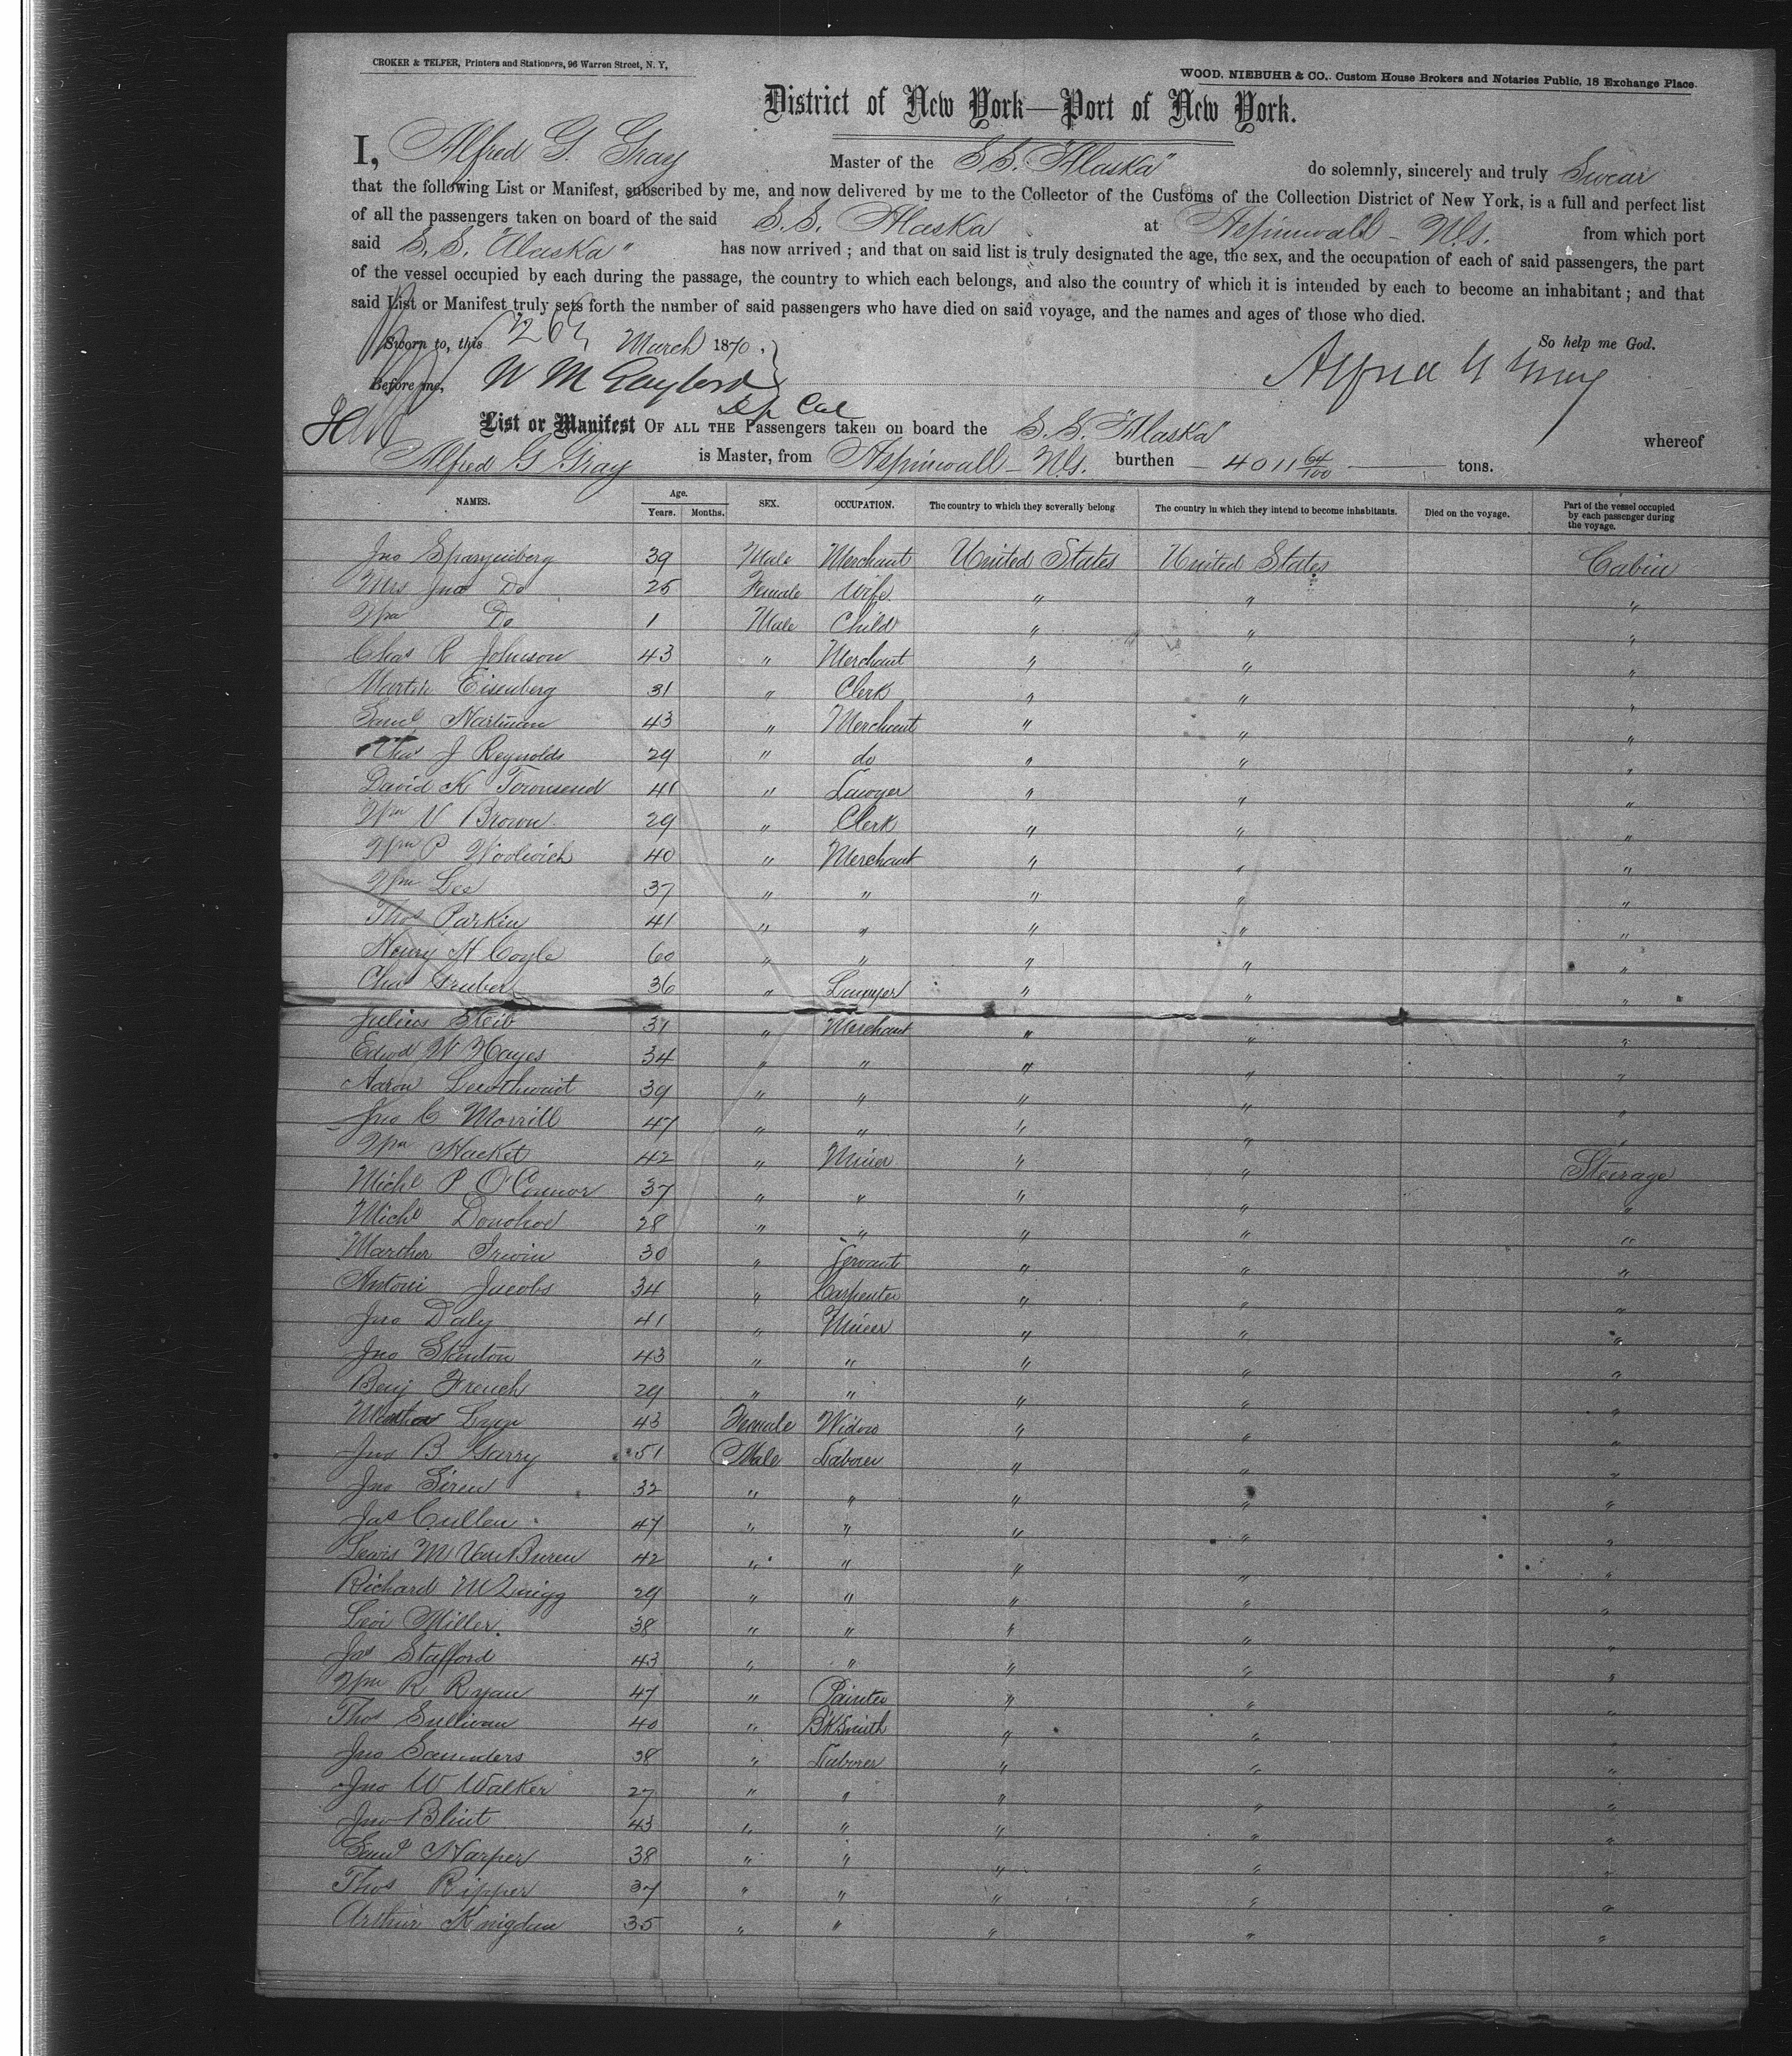 CROKER & TELFER, Printers and Stationers, 96 Warren Street, N. Y.
WOOD, NIEBUHR & CO., Custom House Brokers and Notaries Public, 18 Exchange Place.
District of New York—Port of New York.
I, Alfred G. Gray Master of the S.S. "Alaska" do solemnly, sincerely and truly Swear
that the following List or Manifest, subscribed by me, and now delivered by me to the Collector of the Customs of the Collection District of New York, is a full and perfect list
of all the passengers taken on board of the said S.S. Alaska at Aspinwall - from which port
said S.S. "Alaska" has now arrived; and that on said list is truly designated the age, the sex, and the occupation of each of said passengers, the part
of the vessel occupied by each during the passage, the country to which each belongs, and also the country of which it is intended by each to become an inhabitant; and that
said List or Manifest truly sets forth the number of said passengers who have died on said voyage, and the names and ages of those who died.
Sworn to, this 26 March 1870. So help me God.
Before me, W M Gaylord Alfred G Gray
Dp Col
List or Manifest OF ALL THE Passengers taken on board the S.S. "Alaska" whereof
Alfred G Gray is Master, from Aspinwall - burthen - 4011 64/100 tons.
NAMES. Age. Years. Months. SEX. OCCUPATION. The country to which they severally belong The country in which they intend to become inhabitants. Died on the voyage. Part of the vessel occupied by each passenger during the voyage.
Jno Spanzenberg 39 Male Merchant United States United States Cabin
Mrs Jno Do 25 Female Wife " " "
Wm Do 1 Male Child " " "
Chas R Johnson 43 " Merchant " " "
Martin Eisenberg 31 " Clerk " " "
Saml Hartman 43 " Merchant " " "
Chas J Reynolds 29 " do " " "
David K Townsend 41 " Lawyer " " "
Wm V Brown 29 " Clerk " " "
Wm P Woolwich 40 " Merchant " " "
Wm Lee 37 " " " " "
Thos Parkin 41 " " " " "
Henry H Coyle 60 " " " " "
Chas Gruber 36 " Lawyer " " "
Julius Steib 31 " Merchant " " "
Edwd W Hayes 34 " " " " "
Aaron Lewthwait 39 " " " " "
Jno C Morrill 47 " " " " "
Wm Hacket 42 " Miner " " Steerage
Michl P O'Connor 37 " " " " "
Michl Donohoe 28 " " " " "
Irwin 30 " Servant " " "
Antoni Jacobs 34 " Carpenter " " "
Jno Daly 41 " Miner " " "
Jno Stanton 43 " " " " "
Benj French 29 " " " " "
43 Female Widow " " "
Jno B Garry 51 Male Laborer " " "
Jno Siren 32 " " " " "
Jas Cullen 47 " " " " "
Lewis M Van Buren 42 " " " " "
Richard McQuigg 29 " " " " "
Levi Miller. 38 " " " " "
Jas Stafford 43 " " " " "
Wm R Ryan 47 " Painter " " "
Thos Sullivan 40 " BkSmith " " "
Jno Saunders 38 " Laborer " " "
Jno W Walker 27 " " " " "
Jno Blint 43 " " " " "
Saml Harper 38 " " " " "
Thos Ripper 37 " " " " "
Arthur Knigdan 35 " " " " "